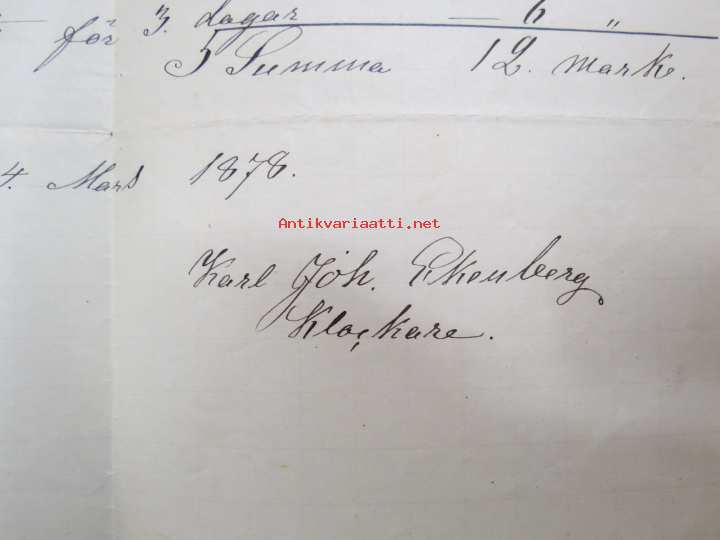 för 3. dagar — 6 „
Summa 12. marke.
4. Mars 1878.
Antikvariaatti.net
Karl Joh. Ekenberg
Klockare.